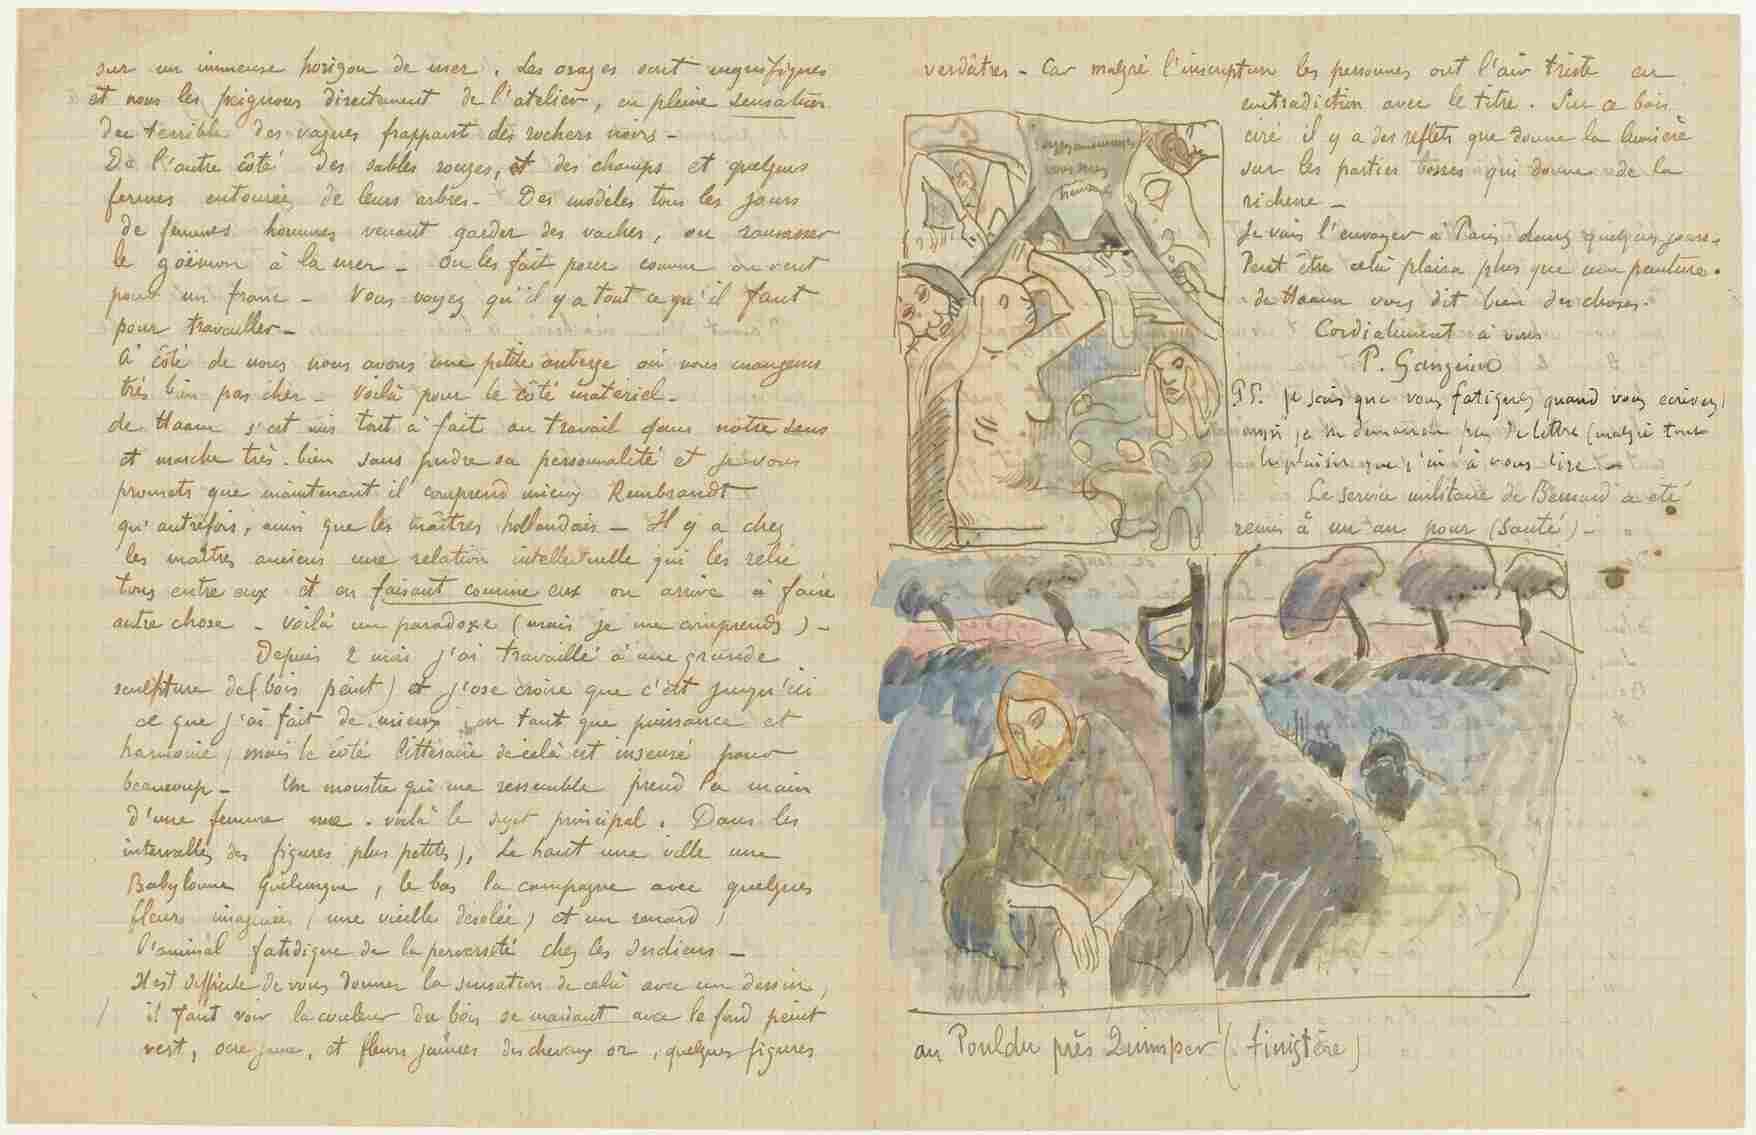 sur un immense horizon de mer. Les orages sont magnifiques
et nous les peignons directement de l'atelier, en pleine sensation
du terrible des vagues frappant des rochers noirs —
De l'autre côté des sables rouges, et des champs et quelques
fermes entourées de leurs arbres — Des modèles tous les jours
de femmes hommes venant garder des vaches, ou ramasser
le goëmon à la mer — On les fait poser comme on veut
pour un franc — Vous voyez qu'il y a tout ce qu'il faut
pour travailler —
A côté de nous nous avons une petite auberge où nous mangeons
très bien pas cher — Voilà pour le côté matériel —
de Haan s'est mis tout à fait au travail dans notre sens
et marche très bien sans perdre sa personnalité et je vous
promets que maintenant il comprend mieux Rembrandt
qu'autrefois, ainsi que les maîtres hollandais — Il y a chez
les maîtres anciens une relation intellectuelle qui les relie
tous entre eux et en faisant comme eux on arrive à faire
autre chose — Voilà un paradoxe (mais je me comprends) —
Depuis 2 mois j'ai travaillé à une grande
sculpture de (bois peint) et j'ose croire que c'est jusqu'ici
ce que j'ai fait de mieux en tant que puissance et
harmonie, mais le côté littéraire de celà est insensé pour
beaucoup — Un monstre qui me ressemble prend la main
d'une femme nue. voilà le sujet principal. Dans les
intervalles des figures plus petites), Le haut une ville une
Babylonne quelconque, le bas la campagne avec quelques
fleurs imaginées (une vieille désolée) et un renard,
l'animal fatidique de la perversité chez les Indiens —
Il est difficile de vous donner la sensation de celà avec un dessin,
il faut voir la couleur du bois se mariant avec le fond peint
vert, ocre jaune, et fleurs jaunes des cheveux or, quelques figures
verdâtres — Car malgré l'inscription les personnes ont l'air triste en
contradiction avec le titre. Sur ce bois
ciré il y a des reflets que donne la lumière
sur les parties bosses qui donne de la
richesse —
Je vais l'envoyer à Paris dans quelques jours.
Peut être celà plaira plus que ma peinture.
de Haan vous dit bien des choses.
Cordialement à vous
P. Gauguin
PS. je sais que vous fatiguez quand vous écrivez
aussi je ne demande pas de lettre (malgré tout
le plaisir que j'ai à vous lire —
Le service militaire de Bernard a été
remis à un an pour (Santé) —
Soyez amoureuses
vous serez
heureuses
au Pouldu près Quimper (Finistère)